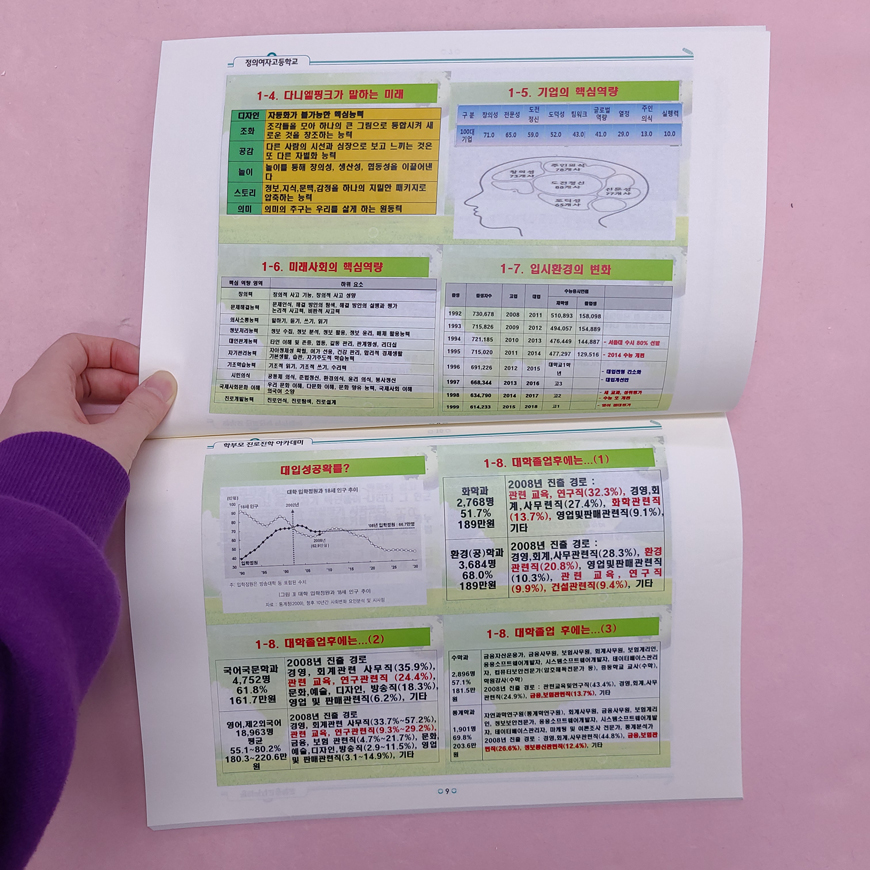 정의여자고등학교
1-4. 다니엘핑크가 말하는 미래
디자인 자동화가 불가능한 핵심능력
조화 조각들을 모아 하나의 큰 그림으로 통합시켜 새
로운 것을 창조하는 능력
공감 다른 사람의 시선과 심장으로 보고 느끼는 것은
또 다른 자벌화 능력
놀이 놀이를 통해 창의성, 생산성, 협동성을 이끌어낸
다
스토리 정보,지식,문맥,감정을 하나의 치밀한 패키지로
압축하는 능력
의미 의미의 추구는 우리를 살게 하는 원동력
1-5. 기업의 핵심역량
구 분 창의성 전문성 도전 정신 도덕성 팀워크 글로벌 역량 열정 주인 의식 실행력
100대 기업 71.0 65.0 59.0 52.0 43.0 41.0 29.0 13.0 10.0
주인의식
창의성
71개사
도전정신
전문성
도덕성
1-6. 미래사회의 핵심역량
핵심 역량 영역 하위 요소
창의력 창의적 사고 기능, 창의적 사고 성향
문제해결능력 문제인식, 해결 방안의 탐색, 해결 방안의 실행과 평가
논리적 사고력, 비판적 사고력
의사소통능력 말하기, 듣기, 쓰기, 읽기
정보처리능력 정보 수집, 정보 분석, 정보 활용, 정보 윤리, 매체 활용능력
대인관계능력 타인 이해 및 존중, 협동, 갈등 관리, 관계형성, 리더십
자기관리능력 자아정체성 확립, 여가 선용, 건강 관리, 합리적 경제생활
기본생활, 습관, 자기주도적 학습능력
기초학습능력 기초적 읽기, 기초적 쓰기, 수리력
시민의식 공동체 의식, 준법정신, 환경의식, 윤리 의식, 봉사정신
국제사회문화 이해 우리 문화 이해, 다문화 이해, 문화 향유 능력, 국제사회 이해
외국어 소양
진로개발능력 진로인식, 진로탐색, 진로설계
1-7. 입시환경의 변화
출생 출생자수 고입 대입 수능응시인원
재학생 졸업생
1992 730,678 2008 2011 510,893 158,098
1993 715,826 2009 2012 494,057 154,889
1994 721,185 2010 2013 476,449 144,887 - 서울대 수시 80% 선발
1995 715,020 2011 2014 477,297 129,516 - 2014 수능 개편
1996 691,226 2012 2015 대학교1학년 - 대입전형 간소화
- 대입개선안
1997 668,344 2013 2016 고3
1998 634,790 2014 2017 고2 수능 또 개편
1999 614,233 2015 2018 고1
학부모 진로진학 아카데미
대입성공확률?
대학 입학정원과 18세 인구 추이
18세 인구
입학정원
[그림 3] 대학 입학정원과 18세 인구 추이
1-8. 대학졸업후에는...(1)
화학과
2,768명
51.7%
189만원
2008년 진출 경로 :
관련 교육, 연구직(32.3%), 경영,회
계,사무관련직(27.4%), 화학관련직
(13.7%), 영업및판매관련직(9.1%),
기타
환경(공)학과
3,684명
68.0%
189만원
2008년 진출 경로 :
경영,회계,사무관련직(28.3%), 환경
관련직(20.8%), 영업및판매관련직
(10.3%), 관련 교육, 연구직
(9.9%), 건설관련직(9.4%), 기타
1-8. 대학졸업후에는...(2)
국어국문학과
4,752명
61.8%
161.7만원
2008년 진출 경로
경영, 회계관련 사무직(35.9%),
관련 교육, 연구관련직 (24.4%),
문화,예술, 디자인, 방송직(18.3%),
영업 및 판매관련직(6.2%), 기타
영어,제2외국어
18,963명
평균
55.1~80.2%
180.3~220.6만
원
2008년 진출 경로
경영, 회계관련 사무직(33.7%~57.2%),
관련 교육, 연구관련직(9.3%~29.2%),
금융, 보험 관련직(4.7%~21.7%), 문화,
예술,디자인,방송직(2.9~11.5%), 영업
및 판매관련직(3.1~14.9%), 기타
1-8. 대학졸업 후에는...(3)
수학과
2,896명
57.1%
181.5만
원
금융자산운용가, 금융사무원, 보험사무원, 회계사무원, 보험계리인,
응용소프트웨어개발자, 시스템소프트웨어개발자, 데이터베이스관리
자, 컴퓨터보안전문가(암호해독전문가 등), 중등학교 교사(수학),
학원강사(수학)
2008년 진출 경로 : 관련교육및연구직(43.4%), 경영,회계,사무
관련직(24.9%), 금융,보험관련직(13.7%), 기타
통계학과
1,901명
69.8%
203.6만
원
자연과학연구원(통계학연구원), 회계사무원, 금융사무원, 보험계리
인, 정보보안전문가, 응용소프트웨어개발자, 시스템소프트웨어개발
자, 데이터베이스관리자, 마케팅 및 여론조사 전문가, 통계분석가
2008년 진출 경로 : 경영,회계,사무관련직(44.8%), 금융,보험관
련직(26.6%), 정보통신관련직(12.4%), 기타
9